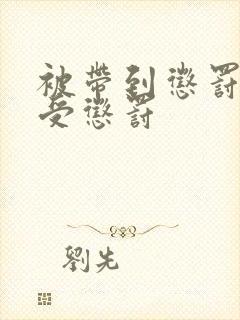 被帶到懲罰
受懲罰
劉先